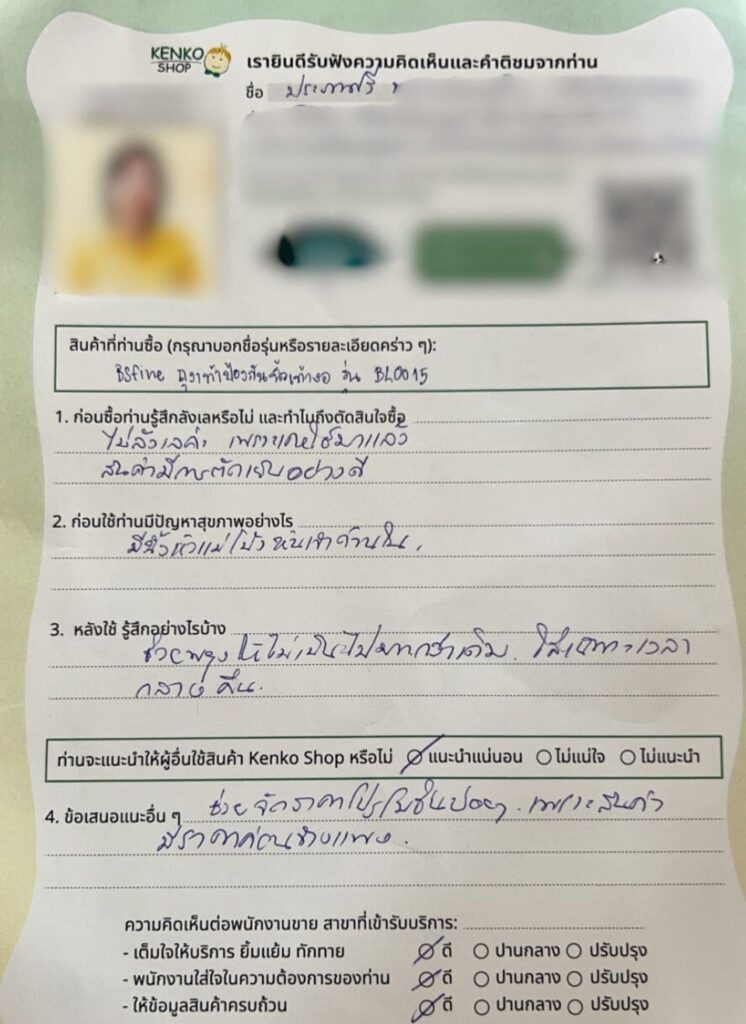 KENKO
SHOP
เรายินดีรับฟังความคิดเห็นและคำติชมจากท่าน
ชื่อ ประภาศรี
สินค้าที่ท่านซื้อ (กรุณาบอกชื่อรุ่นหรือรายละเอียดคร่าว ๆ):
BSfine ถุงเท้าป้องกันนิ้วเท้างอ รุ่น BL0015
1. ก่อนซื้อท่านรู้สึกลังเลหรือไม่ และทำไมถึงตัดสินใจซื้อ
ไม่ลังเลค่ะ เพราะเคยใช้มาแล้ว
สินค้ามีการตัดเย็บอย่างดี
2. ก่อนใช้ท่านมีปัญหาสุขภาพอย่างไร
มีนิ้วหัวแม่โป้งหันเข้าด้านใน
3. หลังใช้ รู้สึกอย่างไรบ้าง
ช่วยพยุงให้ไม่เป็นไปมากกว่าเดิม. ใส่เฉพาะเวลา
กลางคืน.
ท่านจะแนะนำให้ผู้อื่นใช้สินค้า Kenko Shop หรือไม่ แนะนำแน่นอน ไม่แน่ใจ ไม่แนะนำ
4. ข้อเสนอแนะอื่น ๆ ช่วยจัดราคาโปรโมชั่นบ่อยๆ. เพราะสินค้า
มีราคาค่อนข้างแพง.
ความคิดเห็นต่อพนักงานขาย สาขาที่เข้ารับบริการ:
- เต็มใจให้บริการ ยิ้มแย้ม ทักทาย ดี ปานกลาง ปรับปรุง
- พนักงานใส่ใจในความต้องการของท่าน ดี ปานกลาง ปรับปรุง
- ให้ข้อมูลสินค้าครบถ้วน ดี ปานกลาง ปรับปรุง